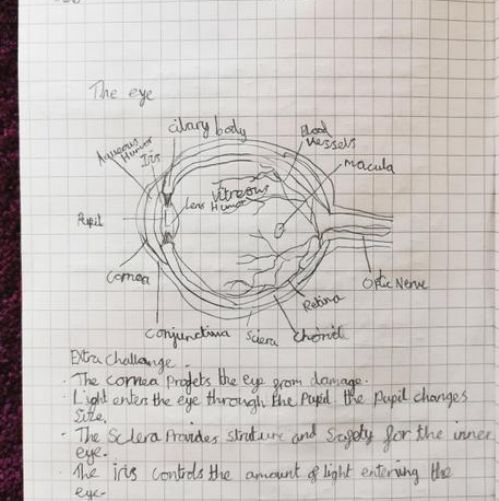 The eye
ciliary body
Blood
vessels
Aqueous
Humor
Iris
macula
Vitreous
Humor
Lens
Pupil
Cornea
Optic Nerve
Retina
Conjunctiva
Sclera
Choroid
Extra Challange -
· The cornea Protets the eye from damage.
· Light enters the eye through the Pupil the Pupil changes
Size.
· The Sclera Provides struture and Safety for the inner
eye.
· The iris controls the amount of light entering the
eye.